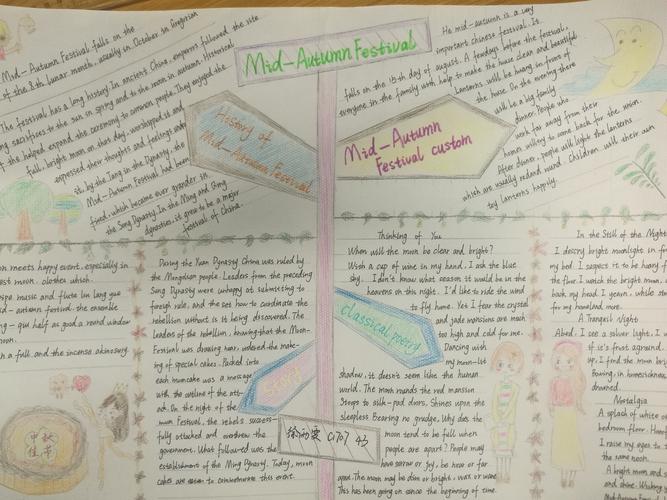 Mid-Autumn Festival
Mid-Autumn Festival falls on the
of the 8th lunar month, usually in October in Gregorian
The festival has a long history. In ancient China, emperors followed the rite
sacrifices to the sun in spring and to the moon in autumn. Historical
the helped expand the ceremony to common people. They enjoyed the
full, bright moon on that day, worshiped it and
expressed their thoughts and feelings under
it, by the Tang Dynasty, the
Mid-Autumn Festival had been
fixed, which became even grander in
the Song Dynasty. In the Ming and Qing
dynasties, it grew to be a major
festival of China.
History of
Mid-Autumn Festival
He mid-autumn is a very
important chinese festival. It
falls on the 15th day of august. A few days before the festival,
everyone in the family with help to make the house clean and beautiful
Lanterns will be hung in front of
the house. On the evening there
will be a big family
dinner. People who
work far away from their
homes will try to come back for the union.
After dinner, people will light the lanterns
which are usually red and round. Children will their own
toy lanterns happily.
Mid-Autumn
Festival custom
meets happy event, especially in
moon, clothes which
music and flute
autumn festival, the ensemble
half as good a round window
moon.
a full and the incense
中秋
佳节
During the Yuan Dynasty China was ruled by
the Mongolian people. Leaders from the preceding
Song Dynasty were unhappy at submitting to
foreign rule, and the set how to coordinate the
rebellion without is being discovered. The
leaders of the rebellion, knowing that the Moon
Festival was drawing near, ordered the mak-
ing of special cakes. Packed into
each mooncake was a message
with the outline of the att-
ack. On the night of the
moon Festival, the rebels success-
fully attached and overthrew the
government. What followed was the
establishment of the Ming Dynasty. Today, moon
cakes are eaten to commemorate this event.
story
C1707 43
Thinking of You
When will the moon be clear and bright?
With a cup of wine in my hand, I ask the blue
sky. I don't know what season it would be in the
heavens on this night. I'd like to ride the wind
to fly home. Yet I fear the crystal
and jade mansions are much
too high and cold for me.
Dancing with
my moon-lit
shadow, it doesn't seem like the human
world. The moon rounds the red mansion
Stoops to silk-pad doors, Shines upon the
sleepless Bearing no grudge, Why does the
moon tend to be full when
people are apart? People may
have sorrow or joy, be near or far
apart. The moon may be dim or bright, wax or wane
This has been going on since the beginning of time.
classical poetry
In the Still of the Night
I descry bright moonlight in
my bed. I suspect it to be hoary
the floor. I watch the bright moon,
back my head. I yearn, while
for my homeland more.
A Tranquil Night
Abed, I see a silver light, I
if it's frost aground.
up, I find the moon
Bowing, in homesickness
drowned.
Nostalgia
A splash of white on
bedroom floor.
I raise my eyes to
the same moon.